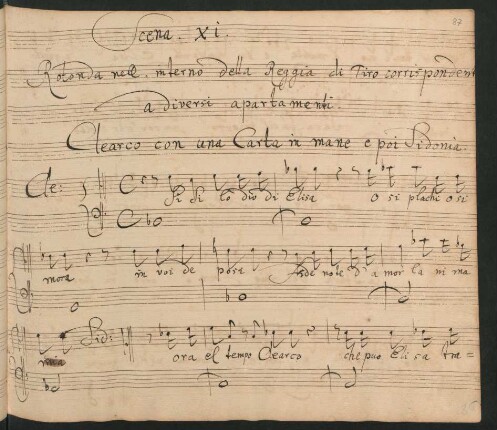 87
Scena. XI.
Rotonda nell. interno della Reggia di Tiro corrispondente
a diversi apartamenti.
Clearco con una Carta in mane e poi Sidonia.
Cle: Si Si lo dio di Elisa O si plachi o si
mora in voi de posi note d'a mor la ni ma
mia Sid: ora el tempo Clearco che puo Eli sa